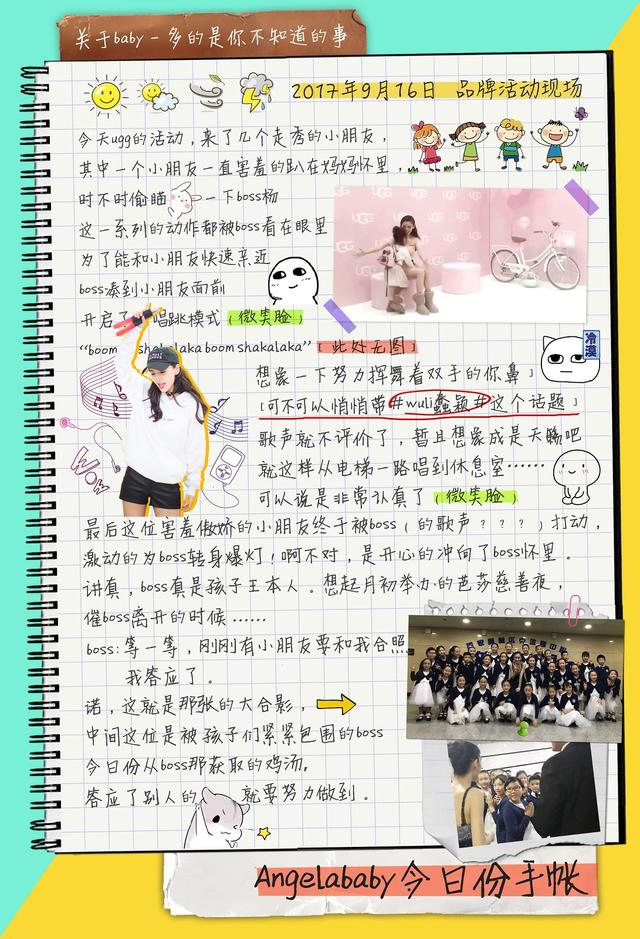 关于baby-多的是你不知道的事
2017年9月16日 品牌活动现场
今天ugg的活动，来了几个走秀的小朋友，
其中一个小朋友一直害羞的趴在妈妈怀里，
时不时偷瞄 一下boss杨
这一系列的动作都被boss看在眼里
为了能和小朋友快速亲近
boss凑到小朋友面前
开启了 唱跳模式（微笑脸）
UGG
“boom shakalaka boom shakalaka”［此处无图］
冷漠
想象一下努力挥舞着双手的你鼻］
［可不可以悄悄带#wuli蠢颖#这个话题］
歌声就不评价了，暂且想象成是天赐吧
就这样从电梯一路唱到休息室……
可以说是非常认真了（微笑脸）
最后这位害羞傲娇的小朋友终于被boss（的歌声？？？）打动，
激动的为boss转身爆灯！啊不对，是开心的冲向了boss怀里。
讲真，boss真是孩子王本人。想起月初举办的芭莎慈善夜，
催boss离开的时候……
boss：等一等，刚刚有小朋友要和我合照
我答应了。
诺，这就是那张的大合影，
中间这位是被孩子们紧紧包围的boss
今日份从boss那获取的鸡汤，
答应了别人的 就要努力做到。
Angelababy今日份手帐